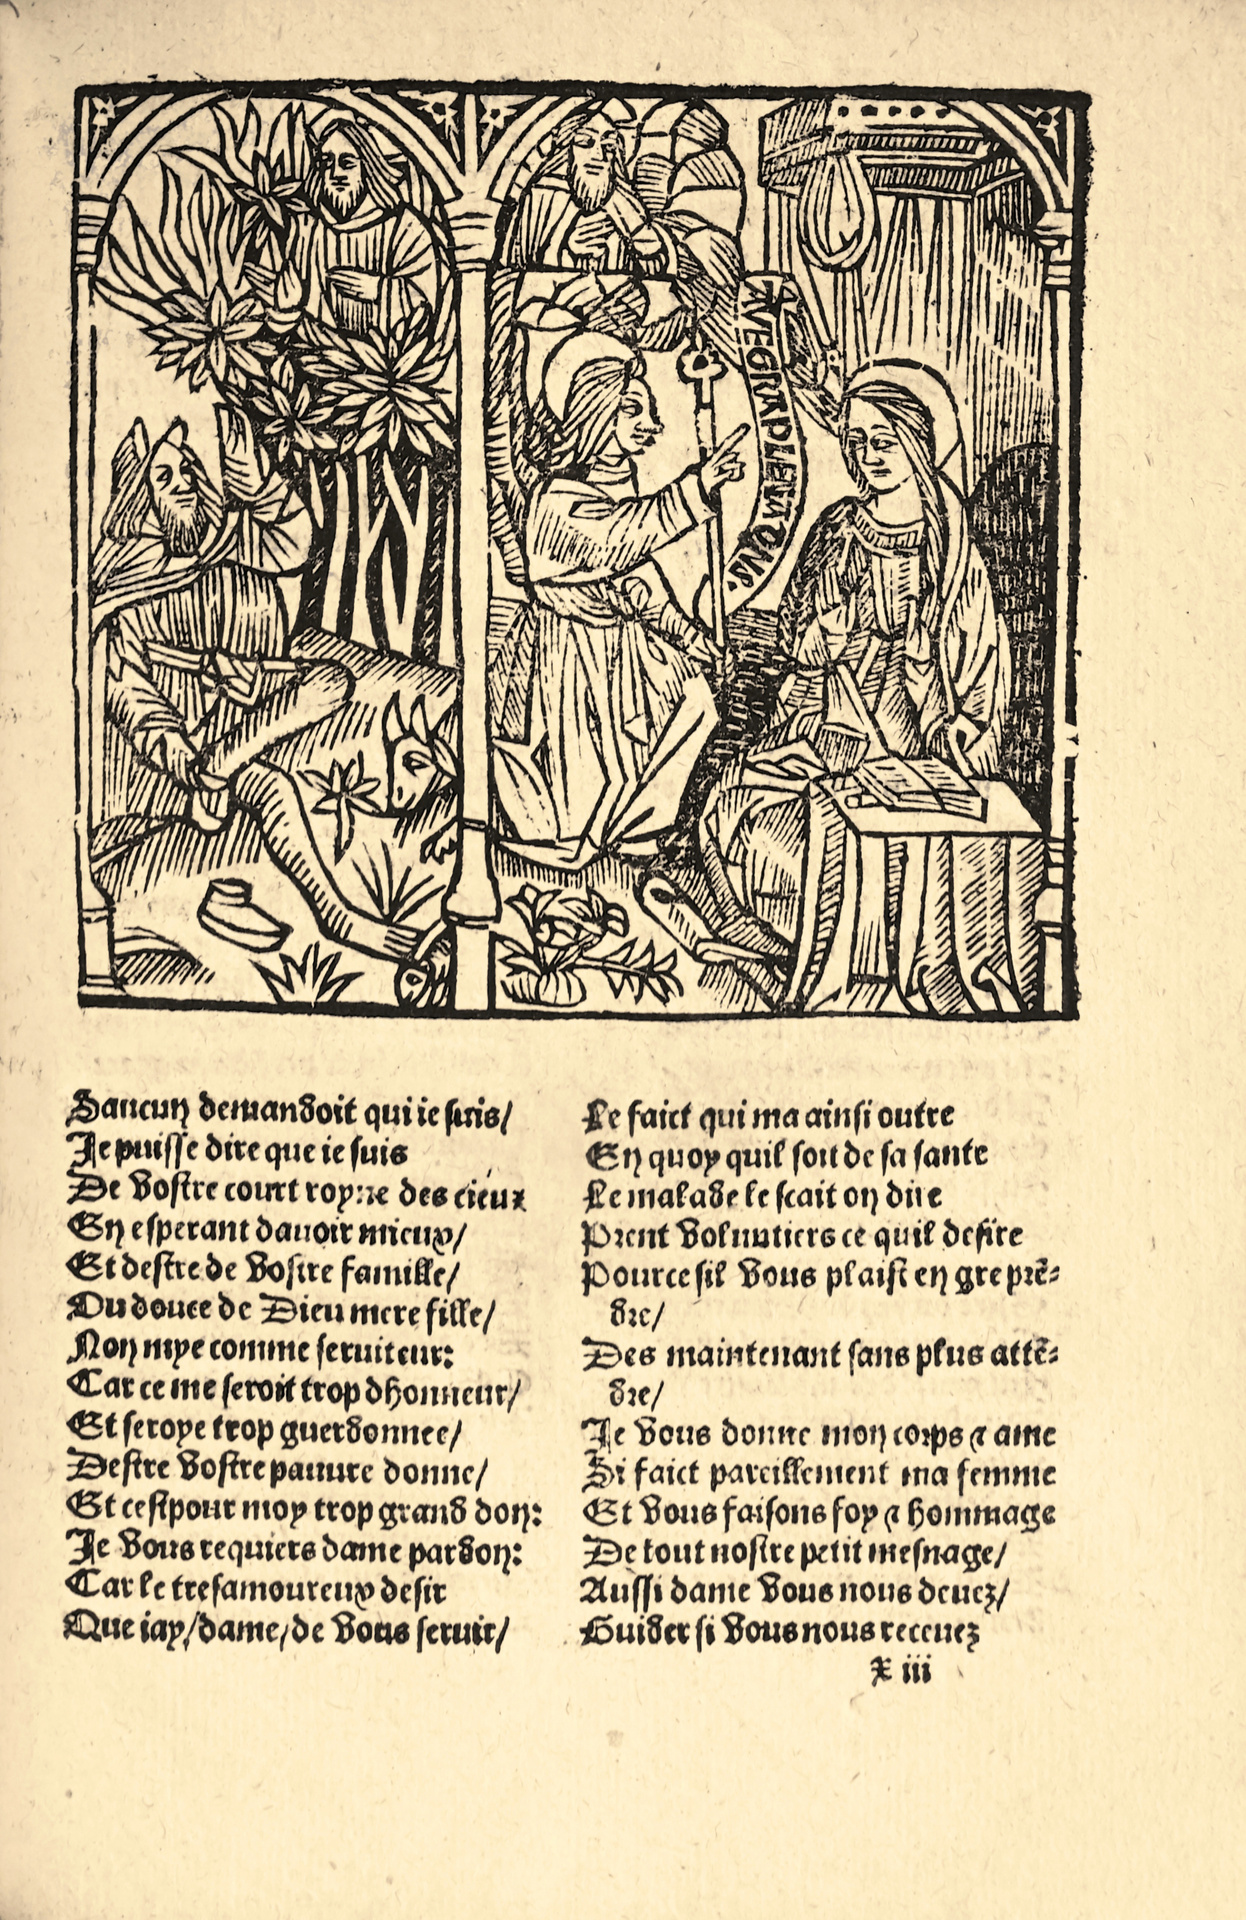 AVEGRAPLENADNS.
Saucun demandoit qui ie suis/
Je puisse dire que ie suis
De vostre court royne des cieux
En esperant dauoir mieux/
Et destre de vostre famille/
Ou douce de Dieu mere fille/
Non mye comme seruiteur:
Car ce me seroit trop dhonneur/
Et seroye trop guerdonnee/
Destre vostre pauure donne/
Et cest pour moy trop grand don:
Je vous requiers dame pardon:
Car le tresamoureux desir
Que iay/dame/de vous seruir/
Le faict qui ma ainsi oultre
En quoy quil soit de sa sante
Le malade le scait on dire
Prent voluntiers ce quil desire
Pource sil vous plaist en gre prē-
dre/
Des maintenant sans plus attē-
dre/
Je vous donne mon corps & ame
Si faict pareillement ma femme
Et vous faisons foy & hommage
De tout nostre petit mesnage/
Aussi dame vous nous deuez/
Guider si vous nous receuez
X iii